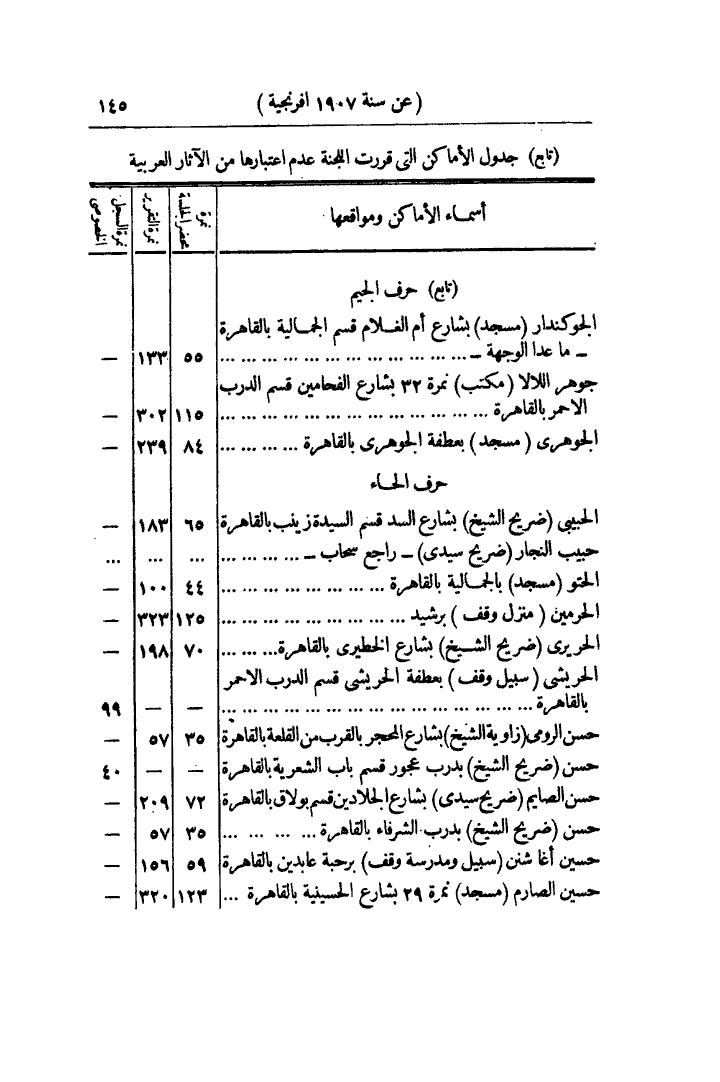 (عن سنة ١٩٠٧ افرنجية) ١٤٥
(تابع) جدول الأماكن التى قررت اللجنة عدم اعتبارها من الآثار العربية
أسماء الأماكن ومواقعها | نمرة محضر الجلسة | نمرة التقرير | نمرة السجل الخصوصى
(تابع) حرف الجيم
الجوكندار (مسجد) بشارع أم الغلام قسم الجمالية بالقاهرة
ـ ما عدا الوجهة ـ ... ... ... ... ... ... ... ... ... ... ... ٥٥ ١٣٣ —
جوهر اللالا (مكتب) نمرة ٣٢ بشارع الفحامين قسم الدرب
الاحمر بالقاهرة ... ... ... ... ... ... ... ... ... ... ... ١١٥ ٣٠٢ —
الجوهرى (مسجد) بعطفة الجوهرى بالقاهرة ... ... ... ... ٨٤ ٢٣٩ —
حرف الحاء
الحبيبى (ضريح الشيخ) بشارع السد قسم السيدة زينب بالقاهرة ٦٥ ١٨٣ —
حبيب النجار (ضريح سيدى) ـ راجع سحاب ـ ... ... ... ... ... ... ...
الحتو (مسجد) بالجمالية بالقاهرة ... ... ... ... ... ... ... ٤٤ ١٠٠ —
الحرمين (منزل وقف) برشيد ... ... ... ... ... ... ... ... ١٢٥ ٣٢٣ —
الحريرى (ضريح الشيخ) بشارع الخطيرى بالقاهرة ... ... ... ٧٠ ١٩٨ —
الحريشى (سبيل وقف) بعطفة الحريشى قسم الدرب الاحمر
بالقاهرة ... ... ... ... ... ... ... ... ... ... ... ... — — ٩٩
حسن الرومى (زاوية الشيخ) بشارع المحجر بالقرب من القلعة بالقاهرة ٣٥ ٥٧ —
حسن (ضريح الشيخ) بدرب عجور قسم باب الشعرية بالقاهرة — — ٤٠
حسن الصايم (ضريح سيدى) بشارع الجلادين قسم بولاق بالقاهرة ٧٢ ٢٠٩ —
حسن (ضريح الشيخ) بدرب الشرفاء بالقاهرة ... ... ... ... ٣٥ ٥٧ —
حسين أغا شنن (سبيل ومدرسة وقف) برحبة عابدين بالقاهرة ٥٩ ١٥٦ —
حسين الصارم (مسجد) نمرة ٢٩ بشارع الحسينية بالقاهرة ... ١٢٣ ٣٢٠ —